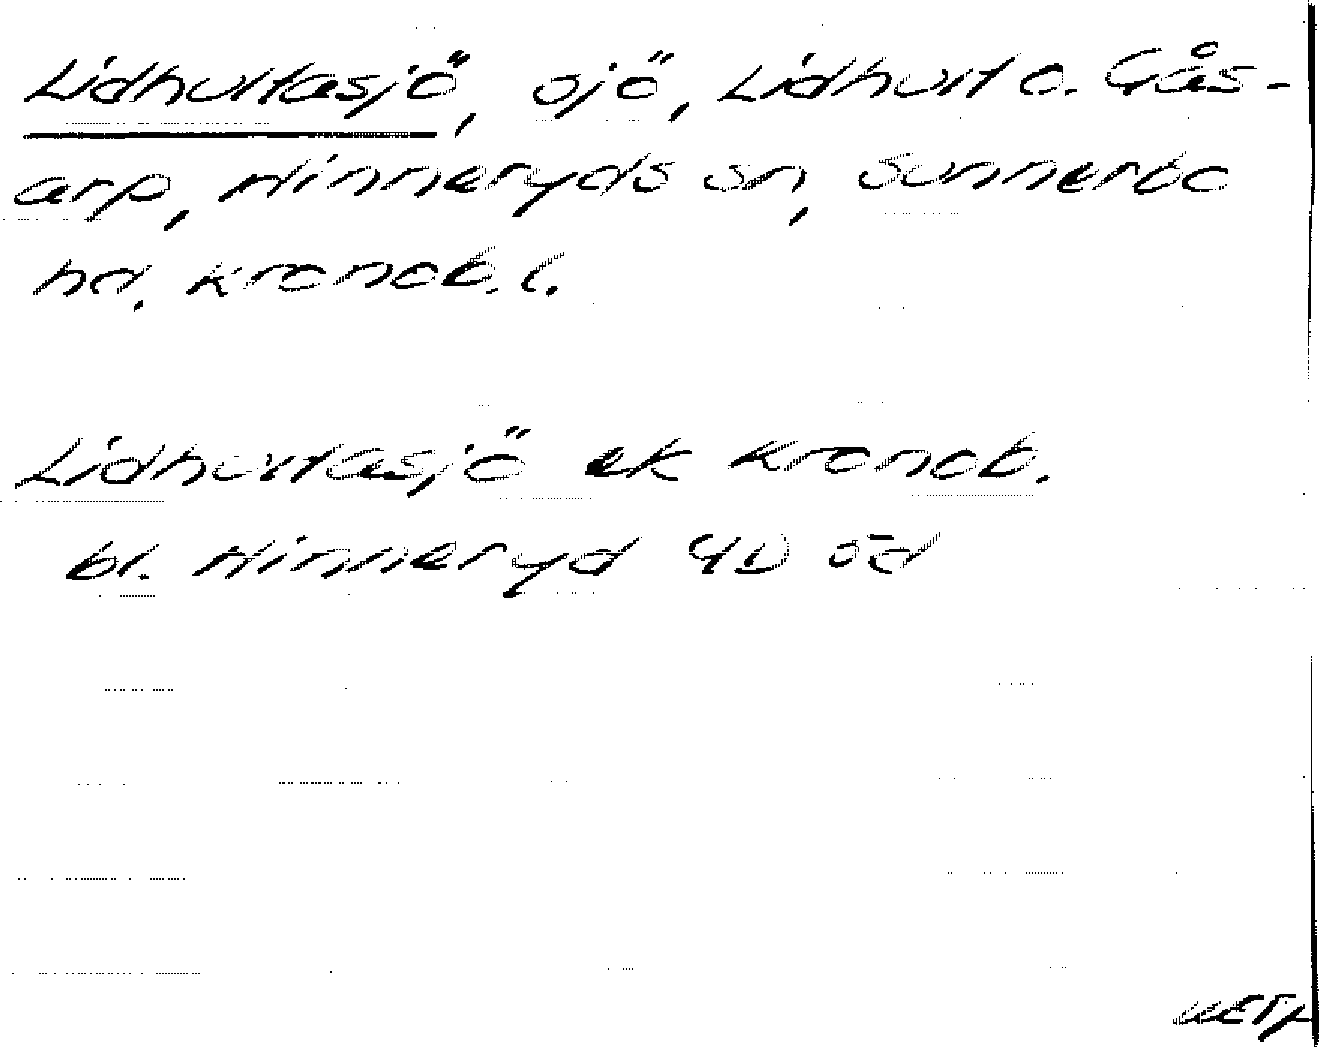 Lidhultasjö, sjö, Lidhult o. Gås-
arp, Hinneryds sn, Sunnerbo
hd. Kronob. l.
Lidhultasjö ek Kronob.
bl. Hinneryd 4D öd